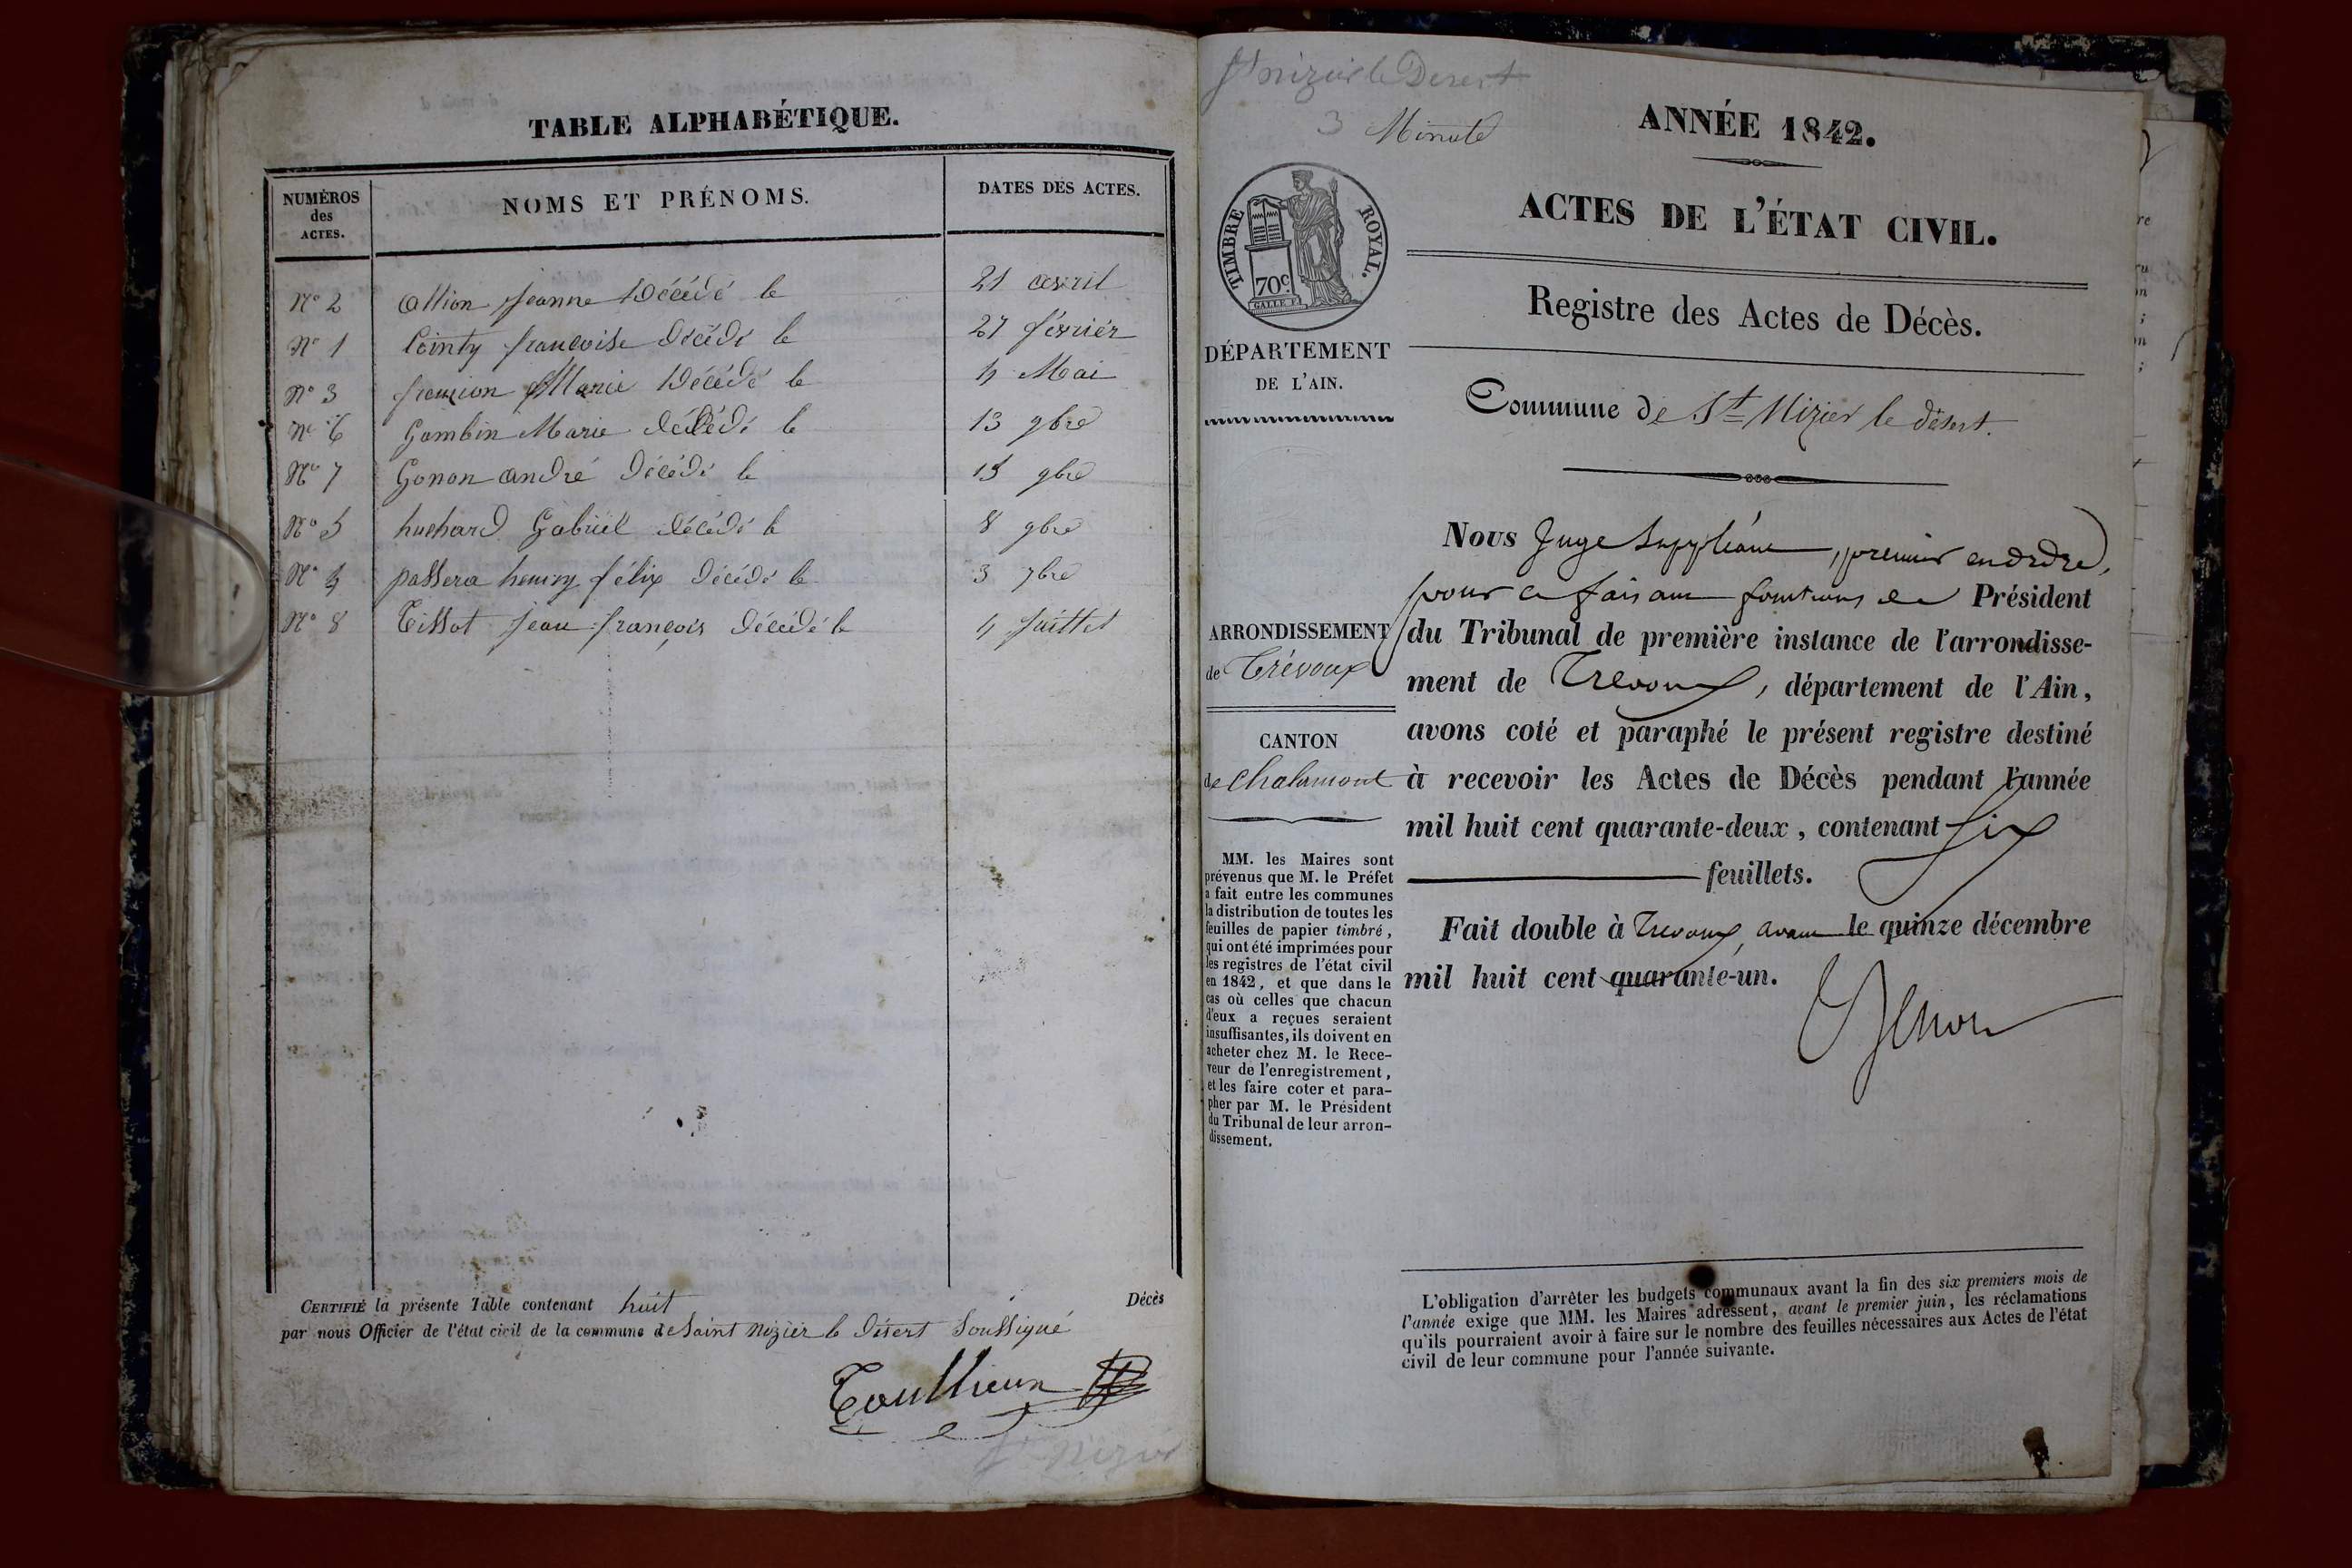 TABLE ALPHABÉTIQUE.
NUMÉROS
des
ACTES.
NOMS ET PRÉNOMS.
DATES DES ACTES.
N° 2 Allion Jeanne Décédé le 21 avril
N° 1 Cointy françoise Décédé le 27 février
N° 3 Marie Décédé le 4 Mai
N° 6 Gambin Marie décédé le 13 9bre
N° 7 Gonon andré Décédé le 15 9bre
N° 5 huchard Gabriel décédé le 8 9bre
N° 4 passera henry félix Décédé le 3 7bre
N° 8 Tissot Jean françois Décédé le 4 Juillet
CERTIFIÉ la présente Table contenant huit Décès
par nous Officier de l'état civil de la commune de Saint Nizier le Désert Soussigné
St Nizier
St nizier le Desert
3 Minute
ANNÉE 1842.
ACTES DE L'ÉTAT CIVIL.
Registre des Actes de Décès.
Commune de St Nizier le désert.
TIMBRE ROYAL.
70c.
GALLE F.
DÉPARTEMENT
DE L'AIN.
ARRONDISSEMENT
de Trévoux
CANTON
de Chalamont
MM. les Maires sont
prévenus que M. le Préfet
a fait entre les communes
la distribution de toutes les
feuilles de papier timbré,
qui ont été imprimées pour
les registres de l'état civil
en 1842, et que dans le
cas où celles que chacun
d'eux a reçues seraient
insuffisantes, ils doivent en
acheter chez M. le Rece-
veur de l'enregistrement,
et les faire coter et para-
pher par M. le Président
du Tribunal de leur arron-
dissement.
Nous Juge Suppléant, premier en ordre,
pour ce faisant fonctions de Président
du Tribunal de première instance de l'arrondisse-
ment de Trevoux, département de l'Ain,
avons coté et paraphé le présent registre destiné
à recevoir les Actes de Décès pendant l'année
mil huit cent quarante-deux, contenant six
feuillets.
Fait double à Trevoux, avant le quinze décembre
mil huit cent quarante-un.
L'obligation d'arrêter les budgets communaux avant la fin des six premiers mois de
l'année exige que MM. les Maires adressent, avant le premier juin, les réclamations
qu'ils pourraient avoir à faire sur le nombre des feuilles nécessaires aux Actes de l'état
civil de leur commune pour l'année suivante.